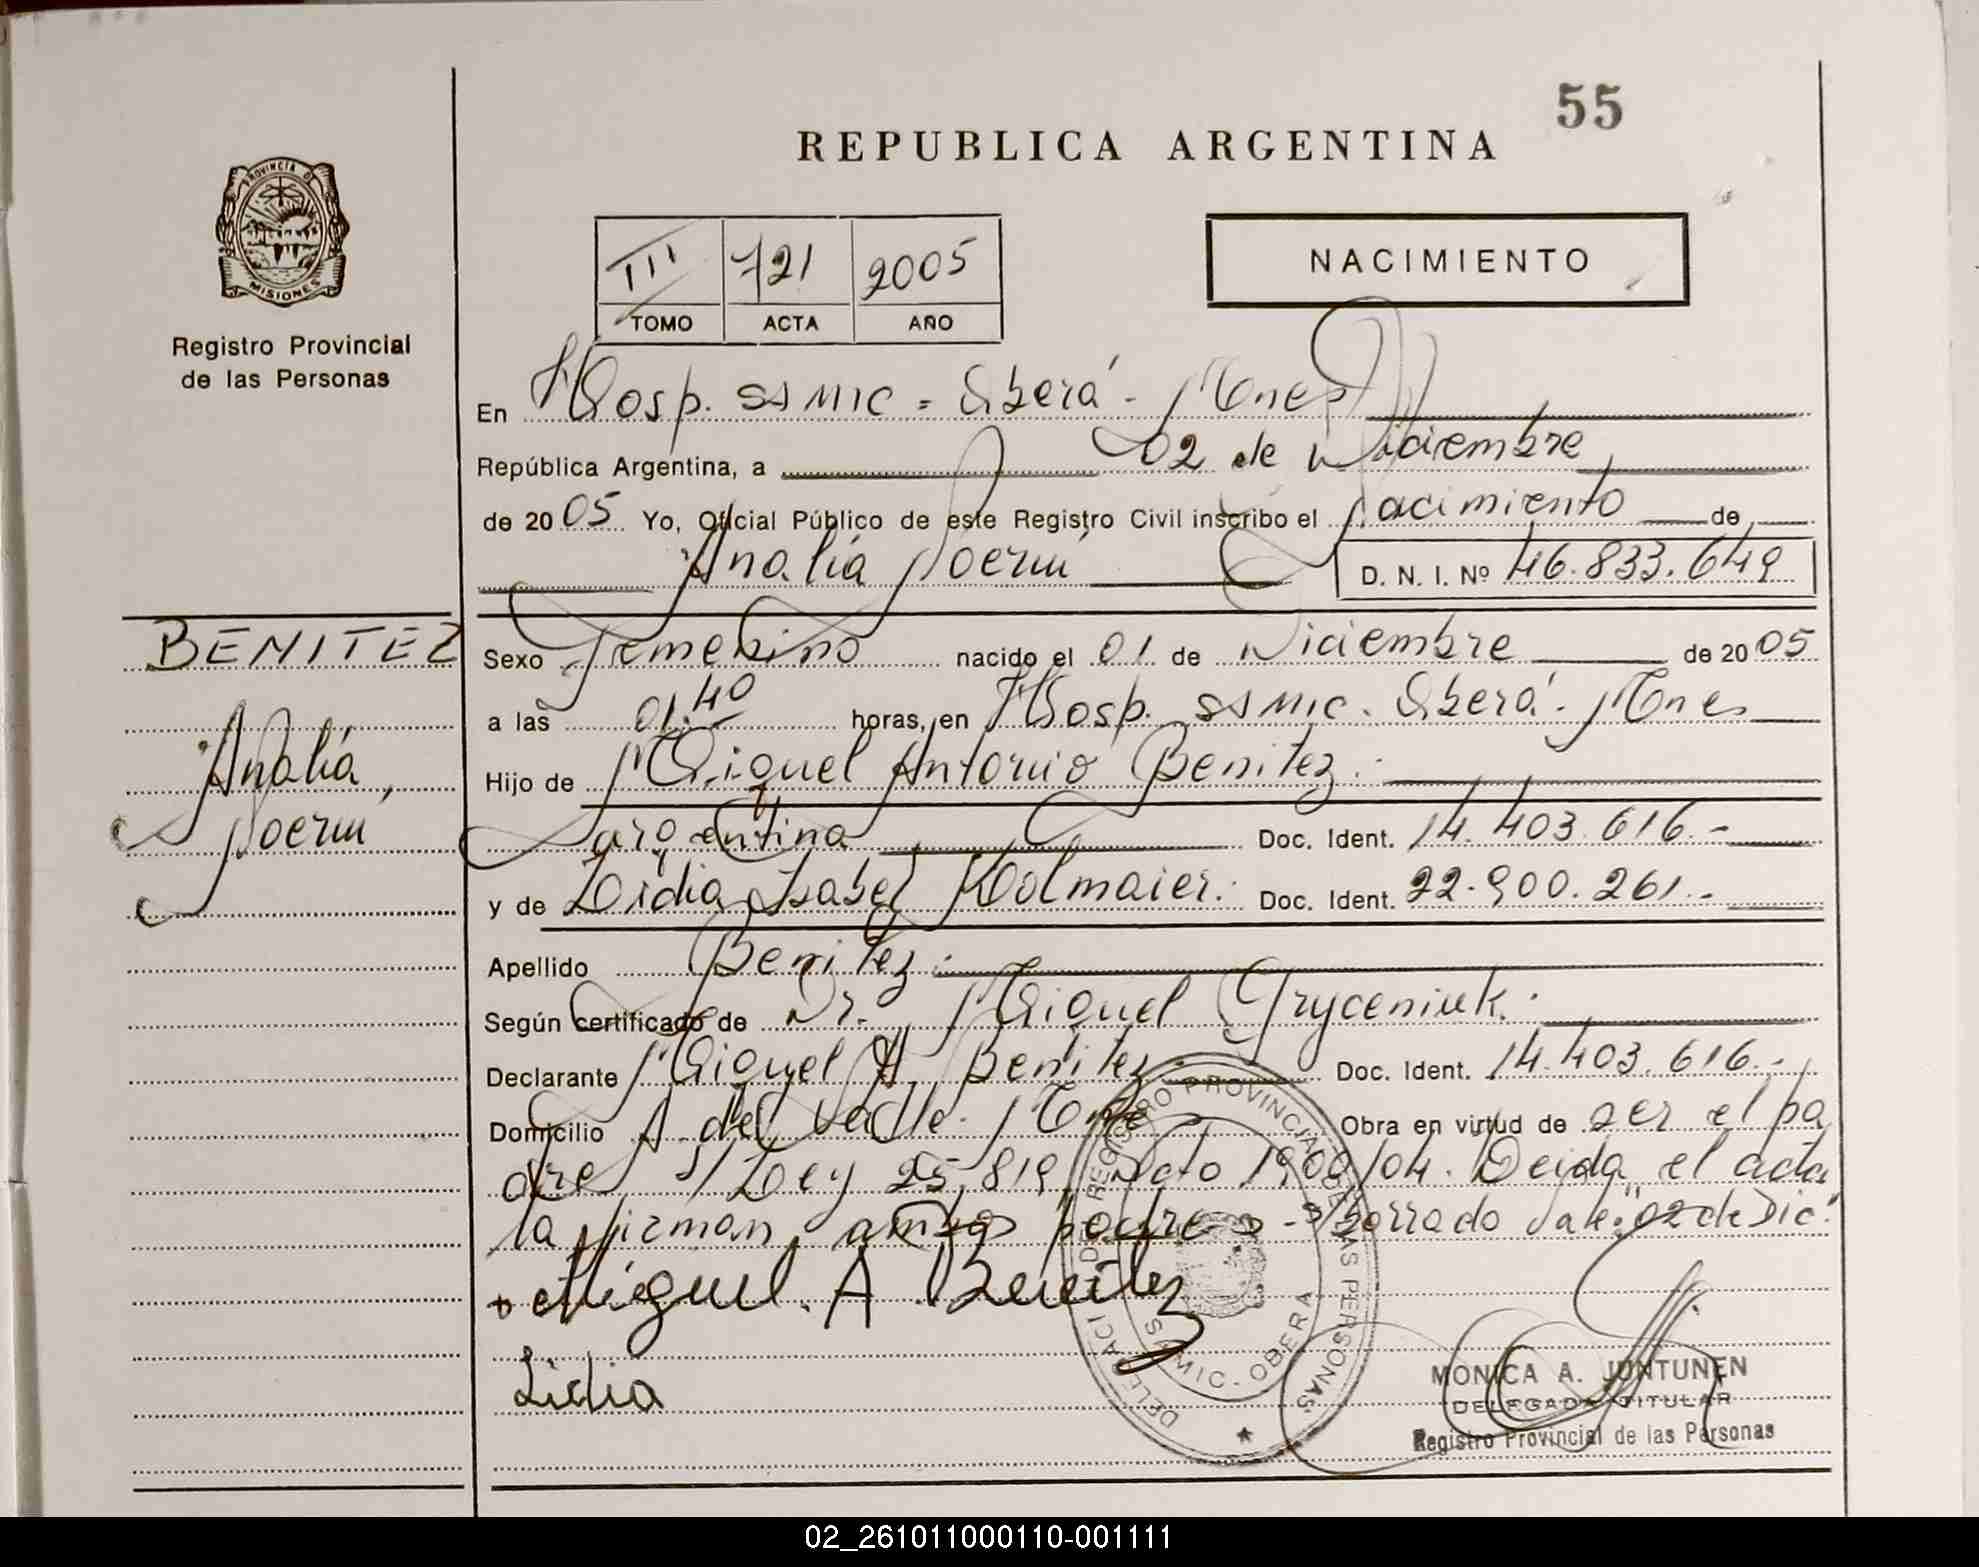 55
REPUBLICA ARGENTINA
PROVINCIA DE
MISIONES
Registro Provincial
de las Personas
III 721 2005
TOMO ACTA AÑO
NACIMIENTO
En Hosp. SAMIC = Oberá - Mnes
República Argentina, a 02 de Diciembre
de 2005 Yo, Oficial Público de este Registro Civil inscribo el Nacimiento de
Analía Noemí D. N. I. Nº 46.833.649
BENITEZ
Analía
Noemí
Sexo Femenino nacido el 01 de Diciembre de 2005
a las 01.40 horas, en Hosp. SAMIC. Oberá - Mnes
Hijo de Miguel Antonio Benitez.-
Argentina Doc. Ident. 14.403.616.-
y de Lidia Isabel Kolmaier. Doc. Ident. 22.900.261.-
Apellido Benitez.-
Según certificado de Dr. Miguel Gryceniuk.
Declarante Miguel A. Benitez.- Doc. Ident. 14.403.616.-
Domicilio A. del Valle - Mnes Obra en virtud de ser el pa
dre s/ Ley 25.819 Dcto 1900/04. Leida el acta
la firman ambos padres - S/borrado Vale: "02 de Dic".
Miguel. A Benitez
Lidia
DELEGACION DE REGISTRO PROVINCIAL DE LAS PERSONAS
SAMIC - OBERA
MONICA A. JUNTUNEN
DELEGADA TITULAR
Registro Provincial de las Personas
02_261011000110-001111